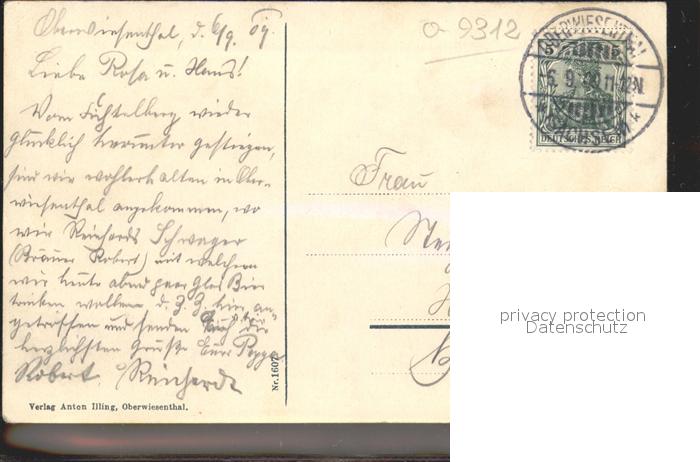 Oberwiesenthal, d. 6/9. 09.
Liebe Rosa u. Hans!
Vom Fichtelberg wieder
glücklich herunter gestiegen,
sind wir wohlerhalten in Ober-
wiesenthal angekommen, wo
wir Reinhards Schwager
(Bräuer Robert) mit welchem
wir heute abend paar Glas Bier
trinken wollen d. Z. hier an-
getroffen und senden Euch die
herzlichsten Grüße Eure
Robert Reinhardt
Verlag Anton Illing, Oberwiesenthal.
Nr. 1607
a 9312
OBERWIESENTHAL
6. 9. 09. 11-12N.
* (SACHSEN) *
5
5
DEUTSCHES REICH
Frau
privacy protection
Datenschutz